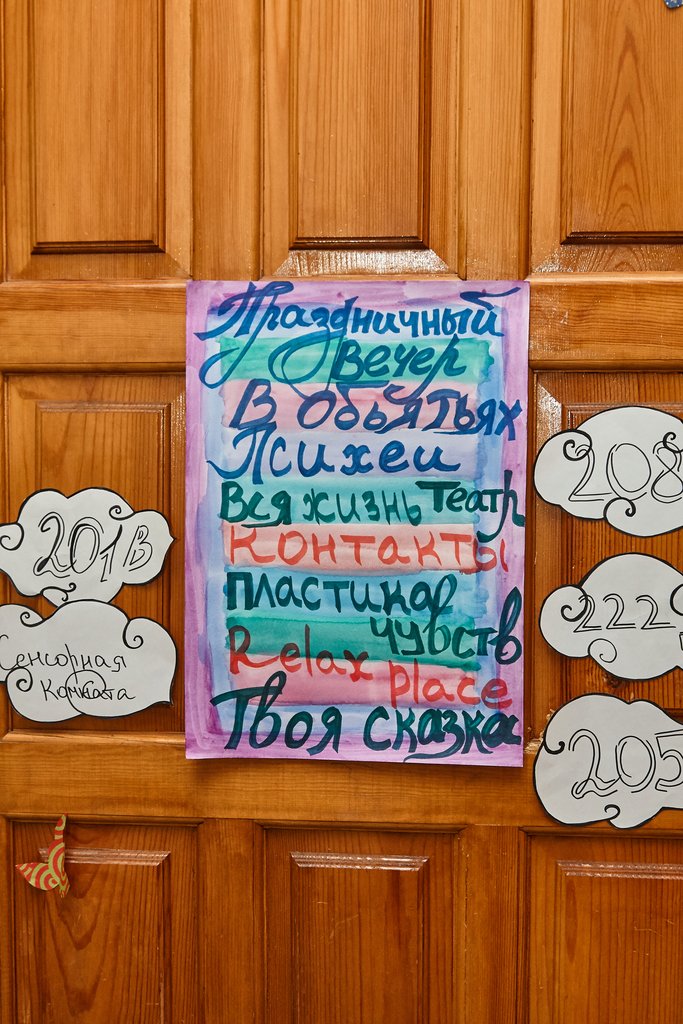 Праздничный
Вечер
В Объятьях
Психеи
Вся жизнь Театр
Контакты
Пластика
чувств
Relax
place
Твоя сказка
201В
Сенсорная
Комната
208
222
205